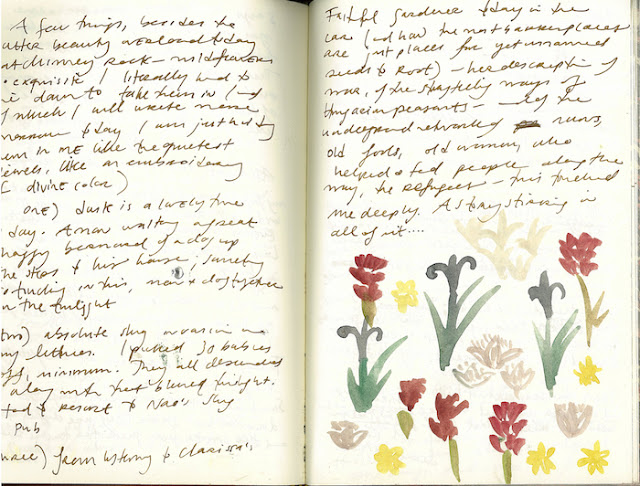 A few things, besides the
utter beauty overload today
at chimney rock – wildflowers
exquisite I literally had to
down to take them in (
of which I will write more
tomorrow today I am just holding
them in me like the quietest
jewels, like an embroidery
of divine color)
one) dusk is a lovely time
day. A man walking a great
happy bernard of a dog up
the steps to his house, something
touching in this, man & dog together
in the twilight
two) absolute slug invasion in
my lettuces. I pulled 30 babies
off, minimum. They all descended
along with their blurred twilight.
to resort to Nao's Slug
Pub
three) from listening to Clarissa's
Faithful Gardener today in the
car (and how the most broken places
are just places for yet unnamed
seeds to root) – her description of
war, of the ways of
Hungarian peasants – of the
underground network of nuns,
old fools, old women who
helped & fed people along the
way, the refugees – this touched
me deeply. A story stirring in
all of it....